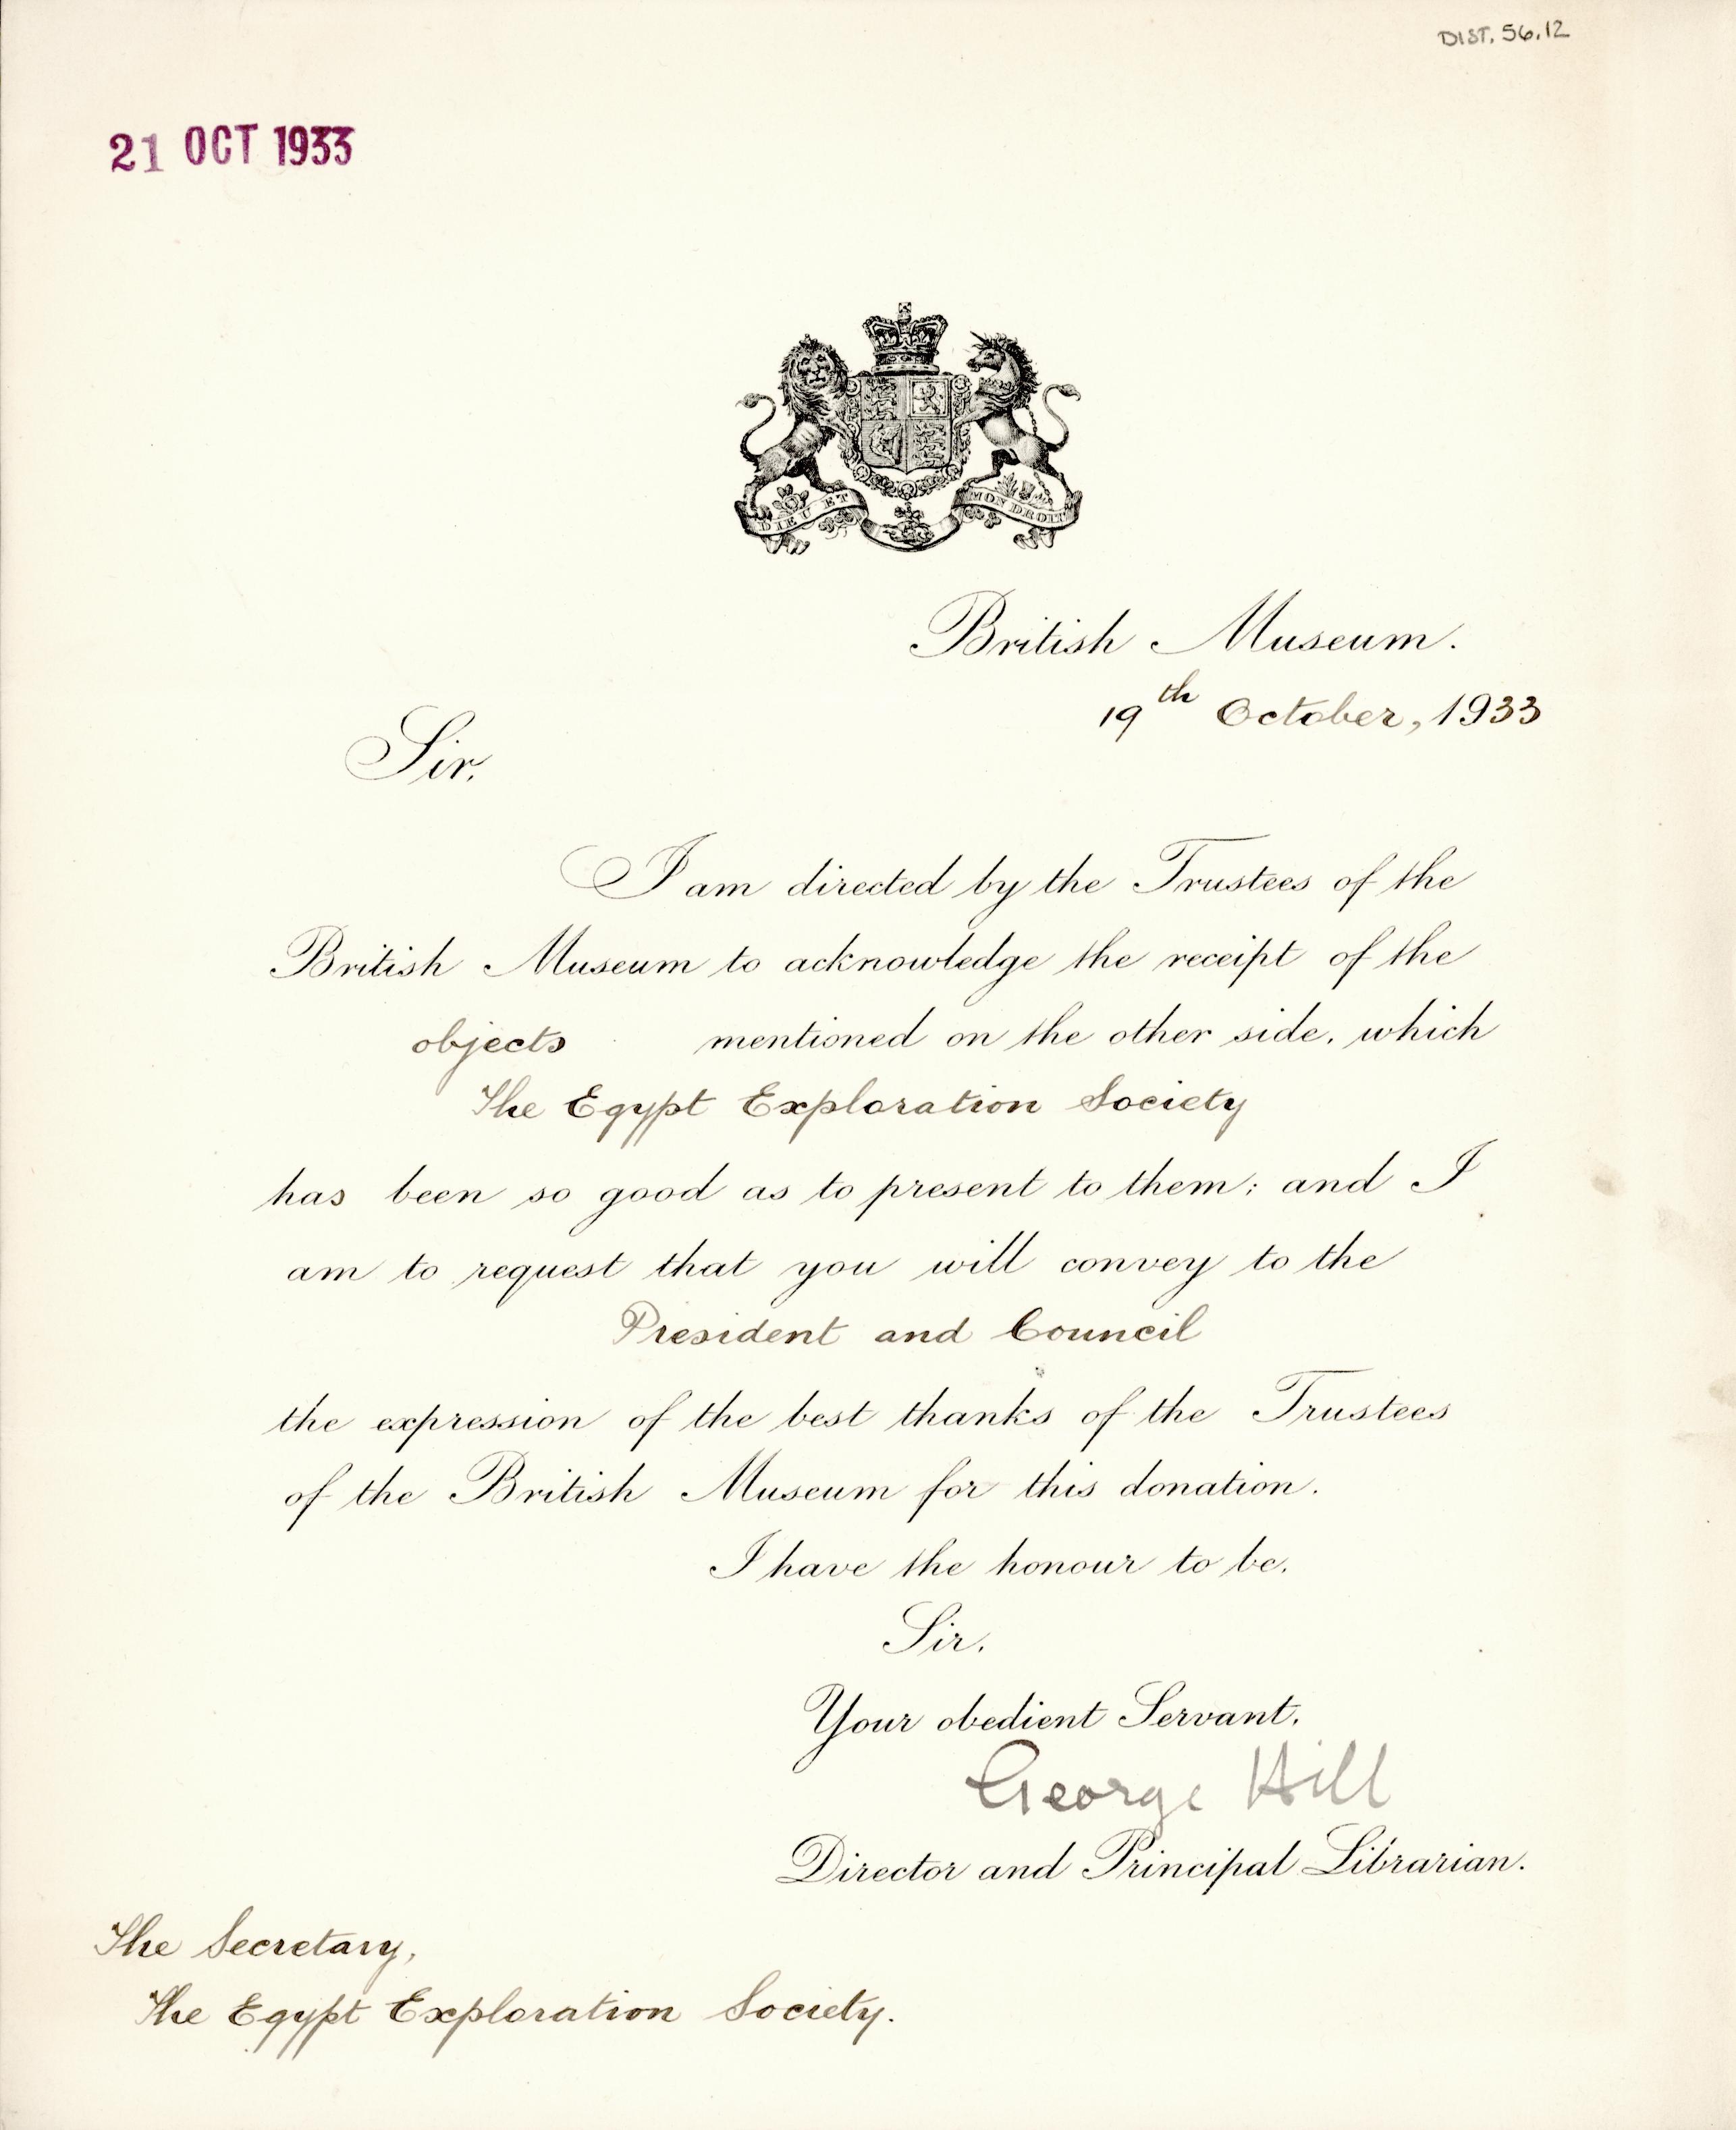 DIST. 56.12
21 OCT 1933
DIEU ET MON DROIT
British Museum.
19th October, 1933
Sir,
I am directed by the Trustees of the
British Museum to acknowledge the receipt of the
objects mentioned on the other side, which
The Egypt Exploration Society
has been so good as to present to them; and I
am to request that you will convey to the
President and Council
the expression of the best thanks of the Trustees
of the British Museum for this donation.
I have the honour to be,
Sir,
Your obedient Servant,
George Hill
Director and Principal Librarian.
The Secretary,
The Egypt Exploration Society.